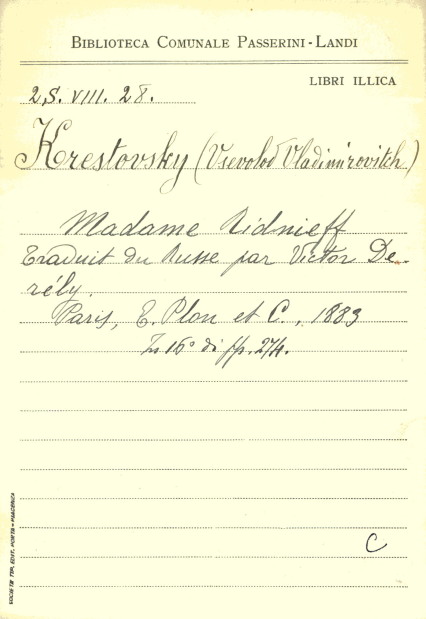 BIBLIOTECA COMUNALE PASSERINI-LANDI
LIBRI ILLICA
2.S. VIII. 28.
Krestovsky (Vsevolod Vladimirovitch.)
Madame Ridnieff
Traduit du Russe par Victor De-
rély.
Paris, E. Plon et C., 1883
In 16° di pp. 274.
C
SOCIETÀ TIP. EDIT. PORTA - PIACENZA